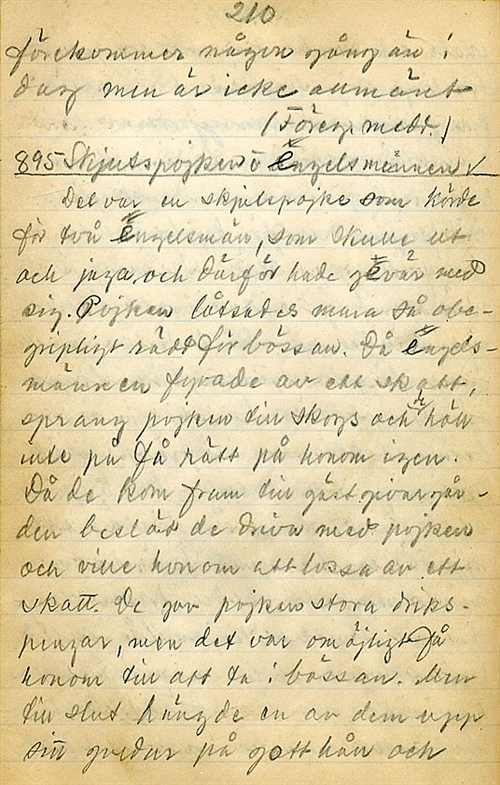 210
förekommer någon gång än i
dag men är icke allmänt
(Föreg. medd.)
895 Skjutspojken o Engelsmännen √
Det var en skjutspojke som körde
för två Engelsmän, som skulle ut
och jaga, och därför hade gevär med
sig. Pojken låtsades vara så obe-
gripligt rädd för bössan. Då Engels-
männen fyrade av ett skott,
sprang pojken till skogs och de höll
inte på få rätt på honom igen.
Då de kom fram till gästgivargår-
den beslöt de driva med pojken
och ville honom att lossa av ett
skott. De gav pojken stora driks-
pengar, men det var omöjligt få
honom till att ta i bössan. Men
till slut hängde en av dem upp
sitt gevär på gott håll och